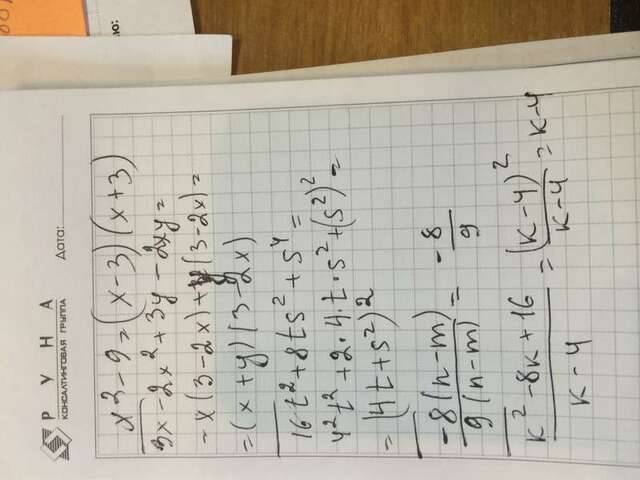 РУНА
КОНСАЛТИНГОВАЯ ГРУППА
Дата:
x² - 9 = (x - 3)(x + 3)
3x - 2x² + 3y - 2xy =
= x(3 - 2x) + y(3 - 2x) =
= (x + y)(3 - 2x)
16t² + 8ts² + s⁴ =
4²t² + 2·4·t·s² + (s²)² =
= (4t + s²)²
-8(n - m) / 9(n - m) = -8 / 9
k² - 8k + 16 / k - 4 = (k - 4)² / k - 4 = k - 4